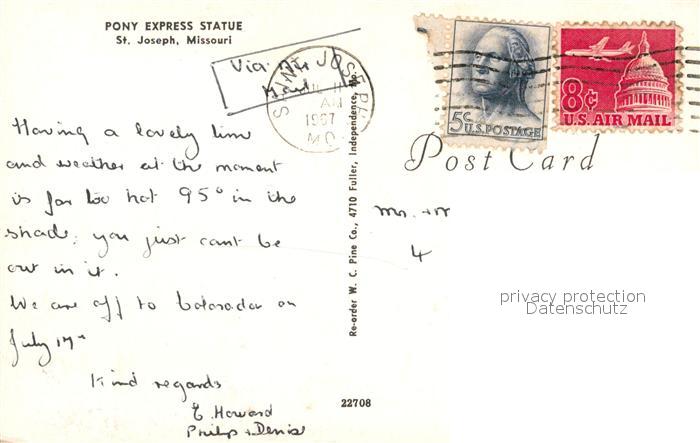 PONY EXPRESS STATUE
St. Joseph, Missouri
Via Air
Mail
SAINT JOSEPH
JUL 11
AM
1967
MO.
5c U.S. POSTAGE
8¢
U.S. AIR MAIL
Post Card
Having a lovely time
and weather at the moment
is far too hot 95° in the
shade, you just cant be
out in it.
We are off to Colorado on
July 17th
Kind regards
E. Howard
Philip + Denise
Re-order W. C. Pine Co., 4710 Fuller, Independence, Mo.
22708
Mr. +
4
privacy protection
Datenschutz